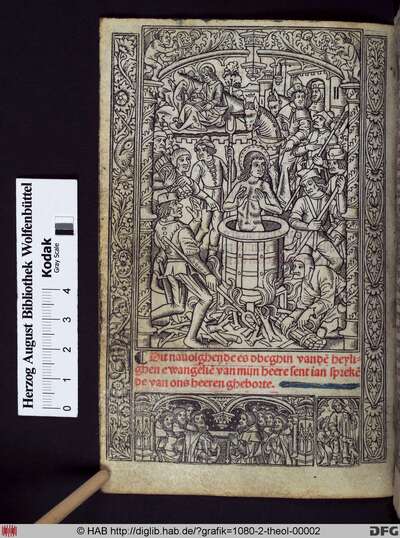 Herzog August Bibliothek Wolfenbüttel
Kodak
Gray Scale
0 1 2 3 4
¶ Dit navolghende es dbeghin vandē heyli-
ghen ewangeliē van mijn heere sent ian spreken-
de van ons heeren gheborte.
© HAB http://diglib.hab.de/?grafik=1080-2-theol-00002
DFG